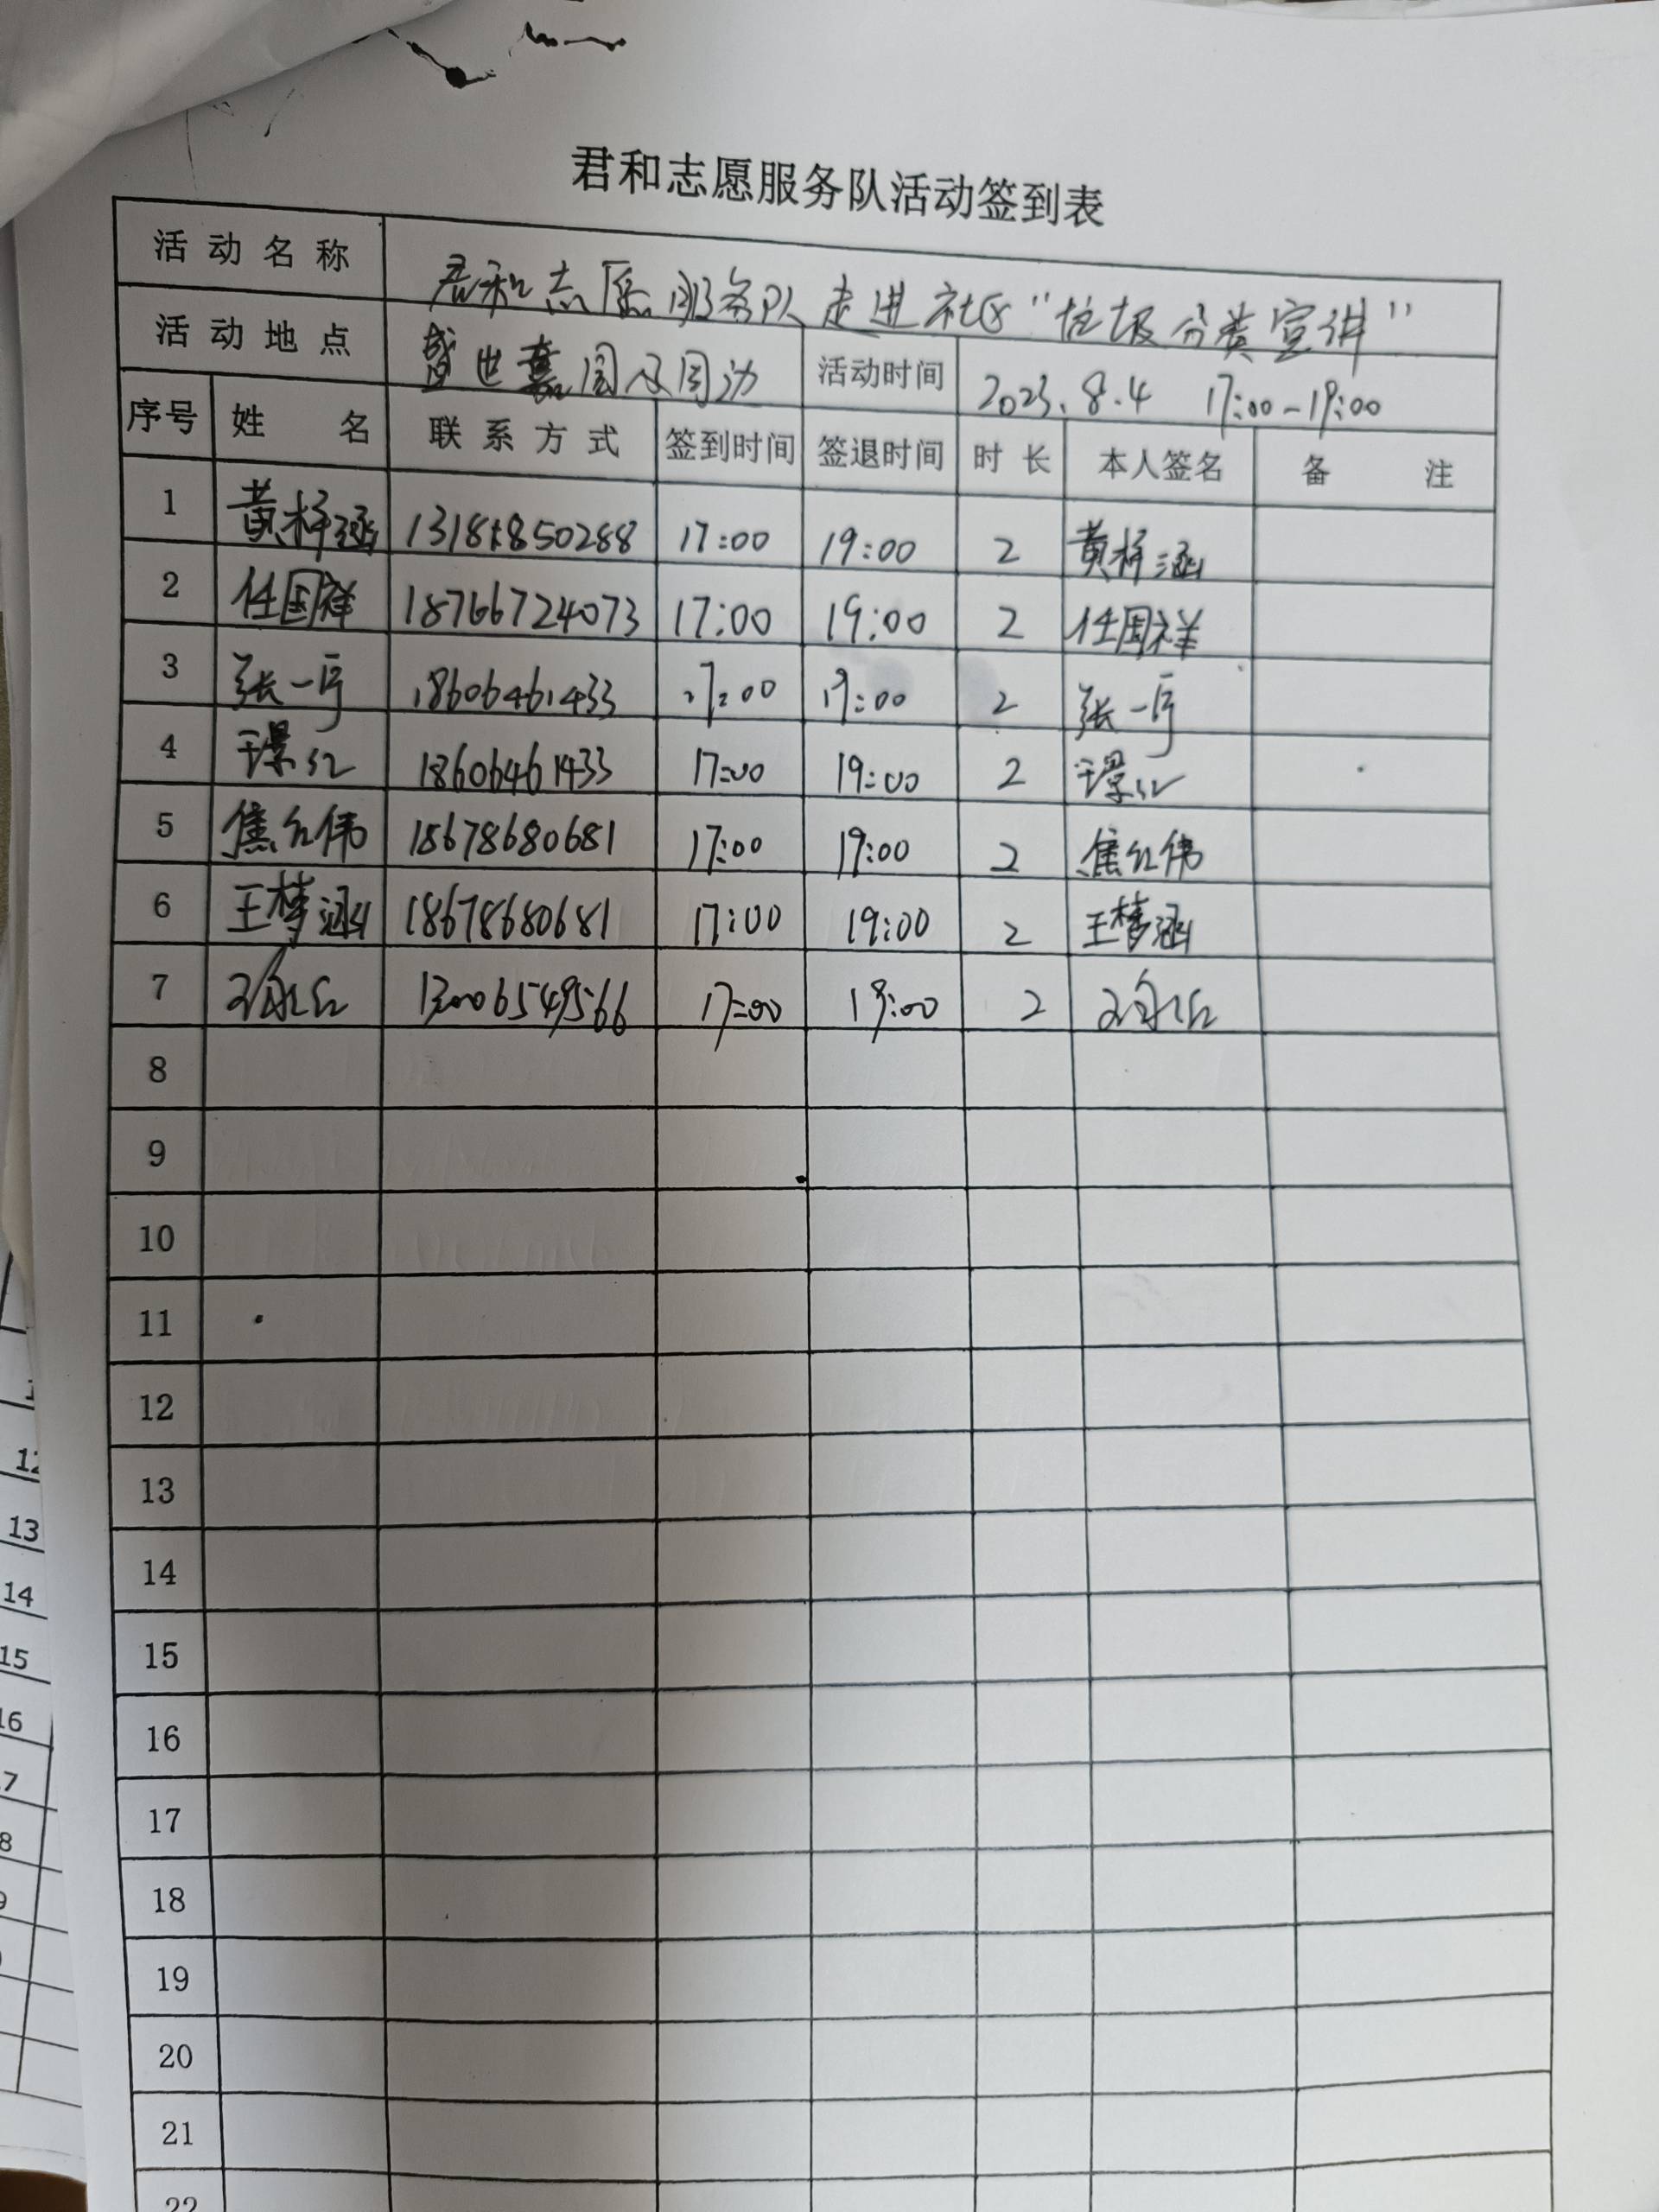 君和志愿服务队活动签到表
活动名称 君和志愿服务队走进社区"垃圾分类宣讲"
活动地点 盛世嘉园及周边 活动时间 2023.8.4 17:00-19:00
序号 姓名 联系方式 签到时间 签退时间 时长 本人签名 备注
1 黄梓涵 17:00 19:00 2 黄梓涵
2 任国祥 18766724073 17:00 19:00 2 任国祥
3 张一 18606461433 17:00 19:00 2 张一
4 18606461433 17:00 19:00 2
5 焦红伟 18678680681 17:00 19:00 2 焦红伟
6 王梦涵 18678680681 17:00 19:00 2 王梦涵
7 17:00 19:00 2
8
9
10
11
12
13
14
15
16
17
18
19
20
21
22
13
14
15